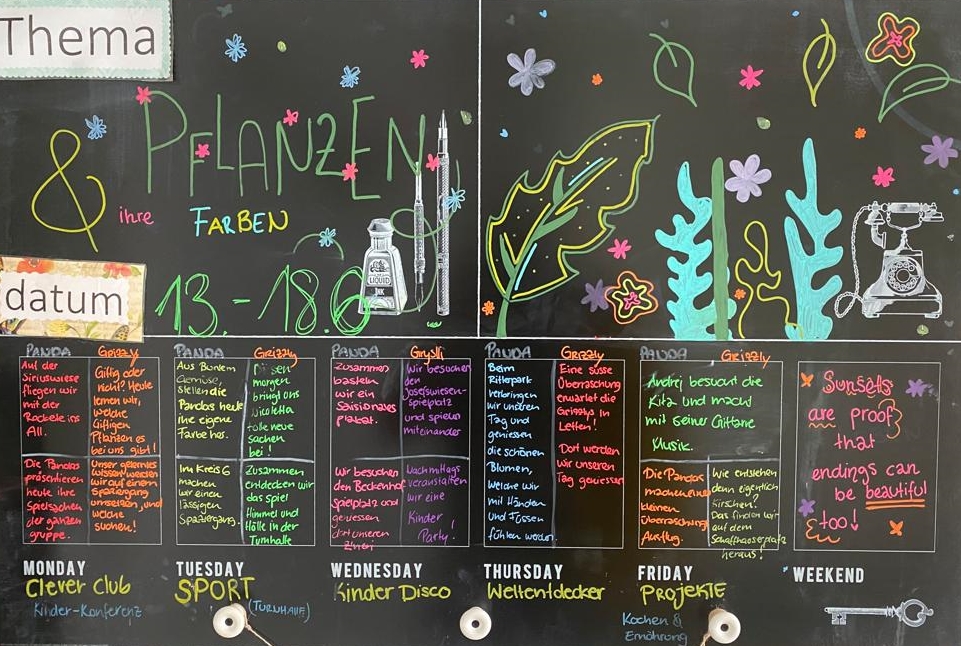 Thema
PFLANZEN
& ihre FARBEN
LIQUID
INK
datum
13.-18.6
PANDA
Auf der
Siriuswiese
fliegen wir
mit der
Rackete ins
All.
Die Pandas
präsentieren
heute ihre
Spielsachen
der ganzen
gruppe.
Grizzly
Giftig oder
nicht? Heute
lernen wir,
welche
Giftigen
Pflanzen es
bei uns gibt!
Unser gelerntes
wissen werden
wir auf einem
Spaziergang
umsetzen und
welche
suchen!
MONDAY
Clever Club
Kinder-Konferenz
PANDA
Aus Buntem
Gemüse,
stellen die
Pandas heute
ihre eigene
Farbe her.
Im Kreis 6
machen
wir einen
lässigen
Spaziergang.
Grizzly
morgen
bringt uns
Nicoletta
tolle neue
sachen
bei!
Zusammen
entdecken wir
das spiel
Himmel und
Hölle in der
Turnhalle
TUESDAY
SPORT
(TURNHALLE)
PANDA
Zusammen
basteln
wir ein
Saisionales
plakat.
Wir besuchen
den Beckenhof
Spielplatz und
geniessen
dort unseren
Zvieri
Gryslli
Wir besuchen
den
Josefswiesen-
spielplatz
und spielen
miteinander
Nachmittags
veranstalten
wir eine
Kinder
Party!
WEDNESDAY
Kinder Disco
PANDA
Beim
Ritterpark
verbringen
wir unseren
Tag und
geniessen
die schönen
Blumen,
welche wir
mit Händen
und Füssen
fühlen werden.
Grizzly
Eine süsse
Überraschung
erwartet die
Grizzlys in
Letten!
Dort werden
wir unseren
Tag geniessen
THURSDAY
Weltentdecker
PANDA
Grizzly
Andrej besucht die
Kita und macht
mit seiner Gittare
Musik.
Die Pandas
machen einen
kleinen
Überraschung
Ausflug.
Wie entstehen
denn eigentlich
Kirschen?
Das finden wir
auf dem
Schaffhauserplatz
heraus!
FRIDAY
PROJEKTE
Kochen &
Ernährung
Sunsets
are proof
that
endings can
be beautiful
too!
WEEKEND